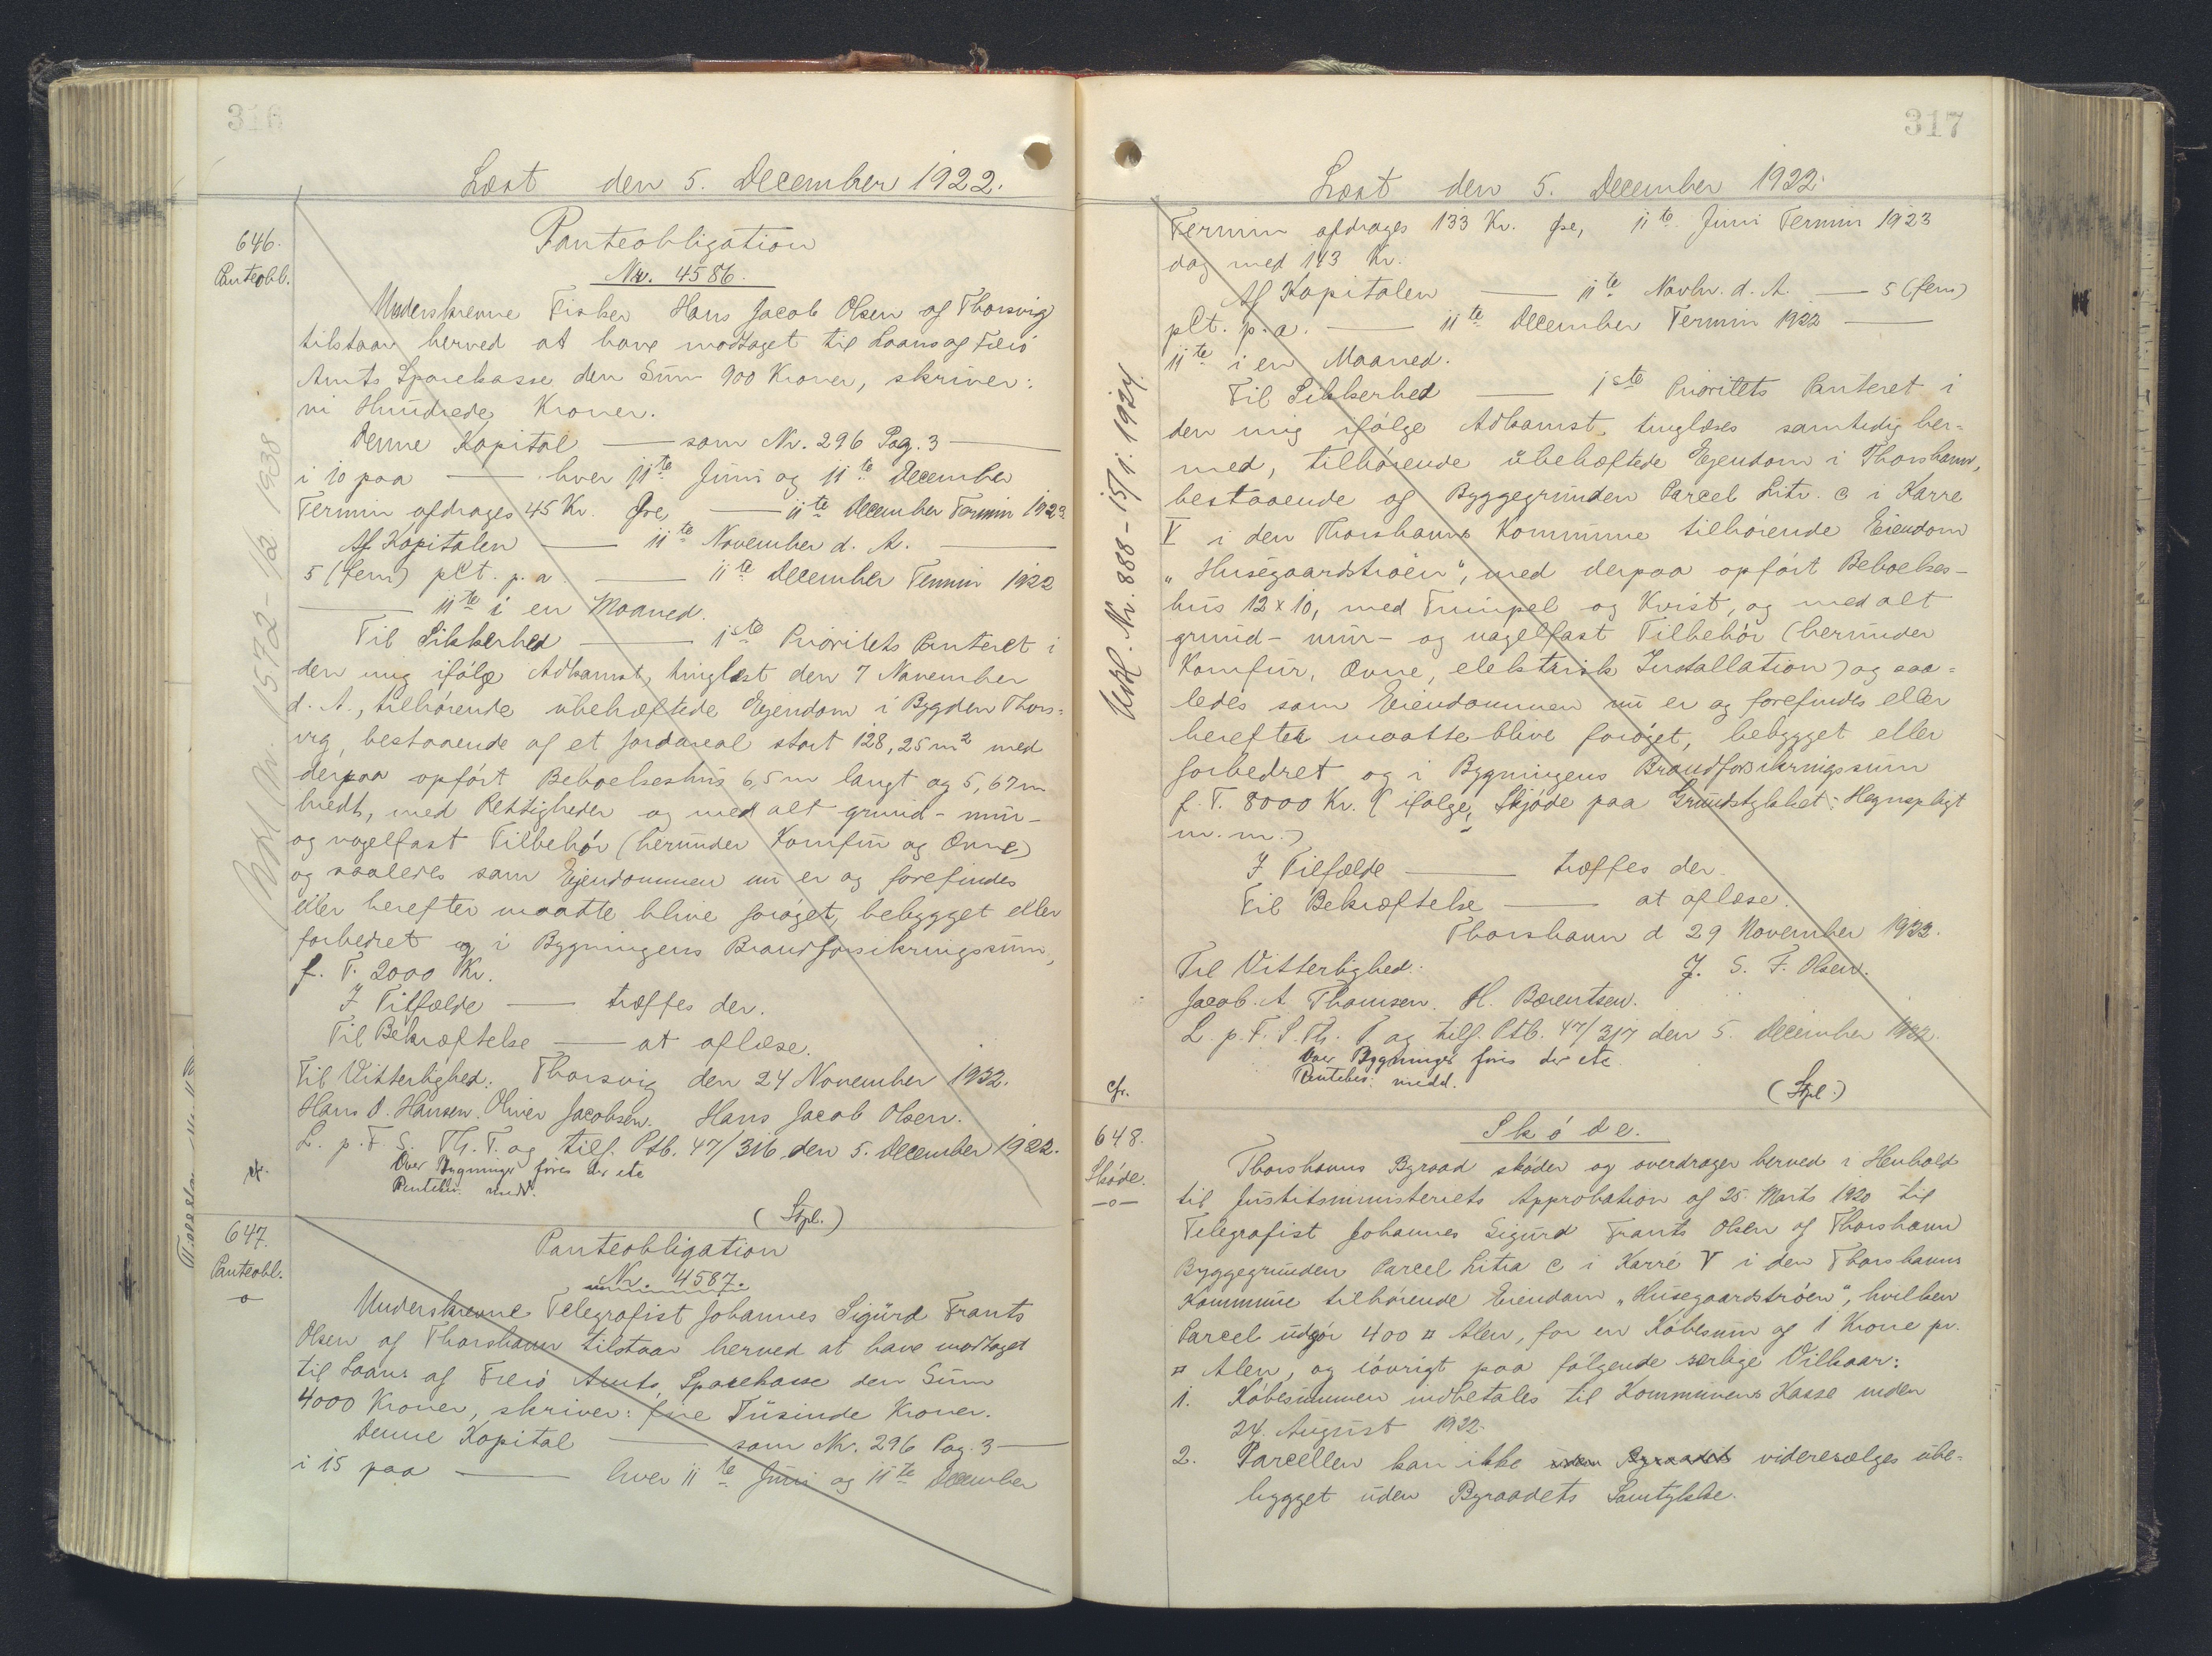 316
Læst den 5. December 1922.
646.
Panteobl.
Panteobligation
Nr. 4586.
Underskrevne Fisker Hans Jacob Olsen af Thorsvig
tilstaar herved at have modtaget til Laans af Færø
Amts Sparekasse den Sum 900 Kroner, skriver:
ni Hundrede Kroner.
Denne Kapital — som Nr. 296 Pag. 3 —
i 10 paa — hver 11te Juni og 11te December
Termin afdrages 45 Kr. Øre, — 11te December Termin 1923
Af Kapitalen — 11te November d. A. —
5 (fem) pCt. p. a. — 11te December Termin 1922
— 11te i en Maaned.
Til Sikkerhed — 1ste Prioritets Panteret i
den mig ifølge Adkomst, tinglæst den 7 November
d. A., tilhørende ubehæftede Ejendom i Bygden Thors-
vig, bestaaende af et Jordareal stort 128,25 m2 med
derpaa opført Beboelseshus 6,5 m langt og 5,67 m
bredt, med Rettigheder og med alt grund- mur-
og nagelfast Tilbehør (herunder Komfur og Ovne)
og saaledes som Ejendommen nu er og forefindes
eller herefter maatte blive forøget, bebygget eller
forbedret og i Bygningens Brandforsikringssum,
f. T. 2000 Kr.
I Tilfælde — træffes der.
Til Bekræftelse — at aflæse.
Til Vitterlighed. Thorsvig den 24 November 1922.
Hans D. Hansen. Oliver Jacobsen. Hans Jacob Olsen.
L. p. F. S. Th. T. og tilf. Ptb. 47/316 den 5. December 1922.
Over Bygninger føres der etc
Pantebr. medd.
cfr.
(Stpl.)
Udsl. Nr. 1572 - 1/2 1938
647.
Panteobl.
-o-
Panteobligation
Nr. 4587.
Underskrevne Telegrafist Johannes Sigurd Frants
Olsen af Thorshavn tilstaar herved at have modtaget
til Laans af Færø Amts Sparekasse den Sum
4000 Kroner, skriver: fire Tusinde Kroner.
Denne Kapital — som Nr. 296 Pag. 3 —
i 15 paa — hver 11te Juni og 11te December
317
Læst den 5. December 1922.
Termin afdrages 133 Kr. Øre, 11te Juni Termin 1923
dog med 143 Kr.
Af Kapitalen — 11te Novbr. d. A. — 5 (fem)
pCt. p. a. — 11te December Termin 1922 —
11te i en Maaned.
Til Sikkerhed — 1ste Prioritets Panteret i
den mig ifølge Adkomst, tinglæses samtidig her-
med, tilhørende ubehæftede Ejendom i Thorshavn,
bestaaende af Byggegrunden Parcel Litr. C i Karre
V i den Thorshavns Kommune tilhørende Eiendom
"Husegaardstrøen", med derpaa opført Beboelses-
hus 12 x 10, med Trempel og Kvist, og med alt
grund- mur- og nagelfast Tilbehør (herunder
Komfur, Ovne, elektrisk Installation) og saa-
ledes som Eiendommen nu er og forefindes eller
herefter maatte blive forøget, bebygget eller
forbedret og i Bygningens Brandforsikringssum
f. T. 8000 Kr. (ifølge Skjøde paa Grundstykket: Hegnspligt
m. m.)
I Tilfælde — træffes der.
Til Bekræftelse — at aflæse.
Thorshavn d 29 November 1922.
Til Vitterlighed: J. S. F. Olsen.
Jacob. A Thomsen. H. Bærentsen.
L. p. F. S. Th. T. og tilf. Ptb. 47/317 den 5. December 1922.
Over Bygninger føres der etc
Pantebr. medd.
cfr.
(Stpl.)
Udsl. Nr. 888 - 15/1. 1924.
648.
Skøde.
-o-
Skøde.
Thorshavns Byraad skøder og overdrager herved i Henhold
til Justitsministeriets Approbation af 25 Marts 1920 til
Telegrafist Johannes Sigurd Frants Olsen af Thorshavn
Byggegrunden Parcel Litra C i Karré V i den Thorshavns
Kommune tilhørende Eiendom "Husegaardstrøen", hvilken
Parcel udgør 400 □ Alen, for en Købesum af 1 Krone pr.
□ Alen, og iøvrigt paa følgende særlige Vilkaar:
1. Købesummen indbetales til Kommunens Kasse inden
24. August 1922.
2. Parcellen kan ikke uden Byraadets videresælges ube-
bygget uden Byraadets Samtykke.